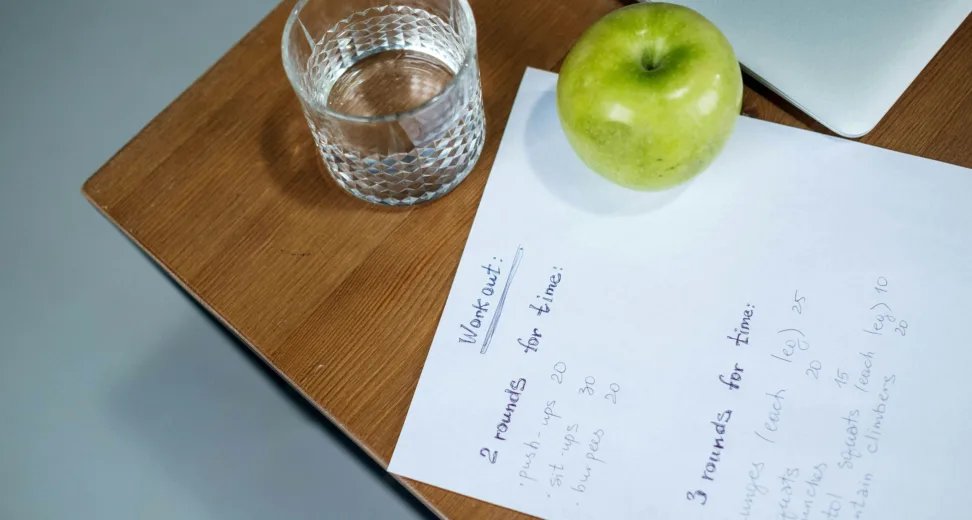 Workout:
2 rounds for time:
· push-ups 20
· sit-ups 30
· burpees 20
3 rounds for time:
unges (each leg) 25
quats 20
unches 15
tol squats (each leg) 10
ntain climbers 20